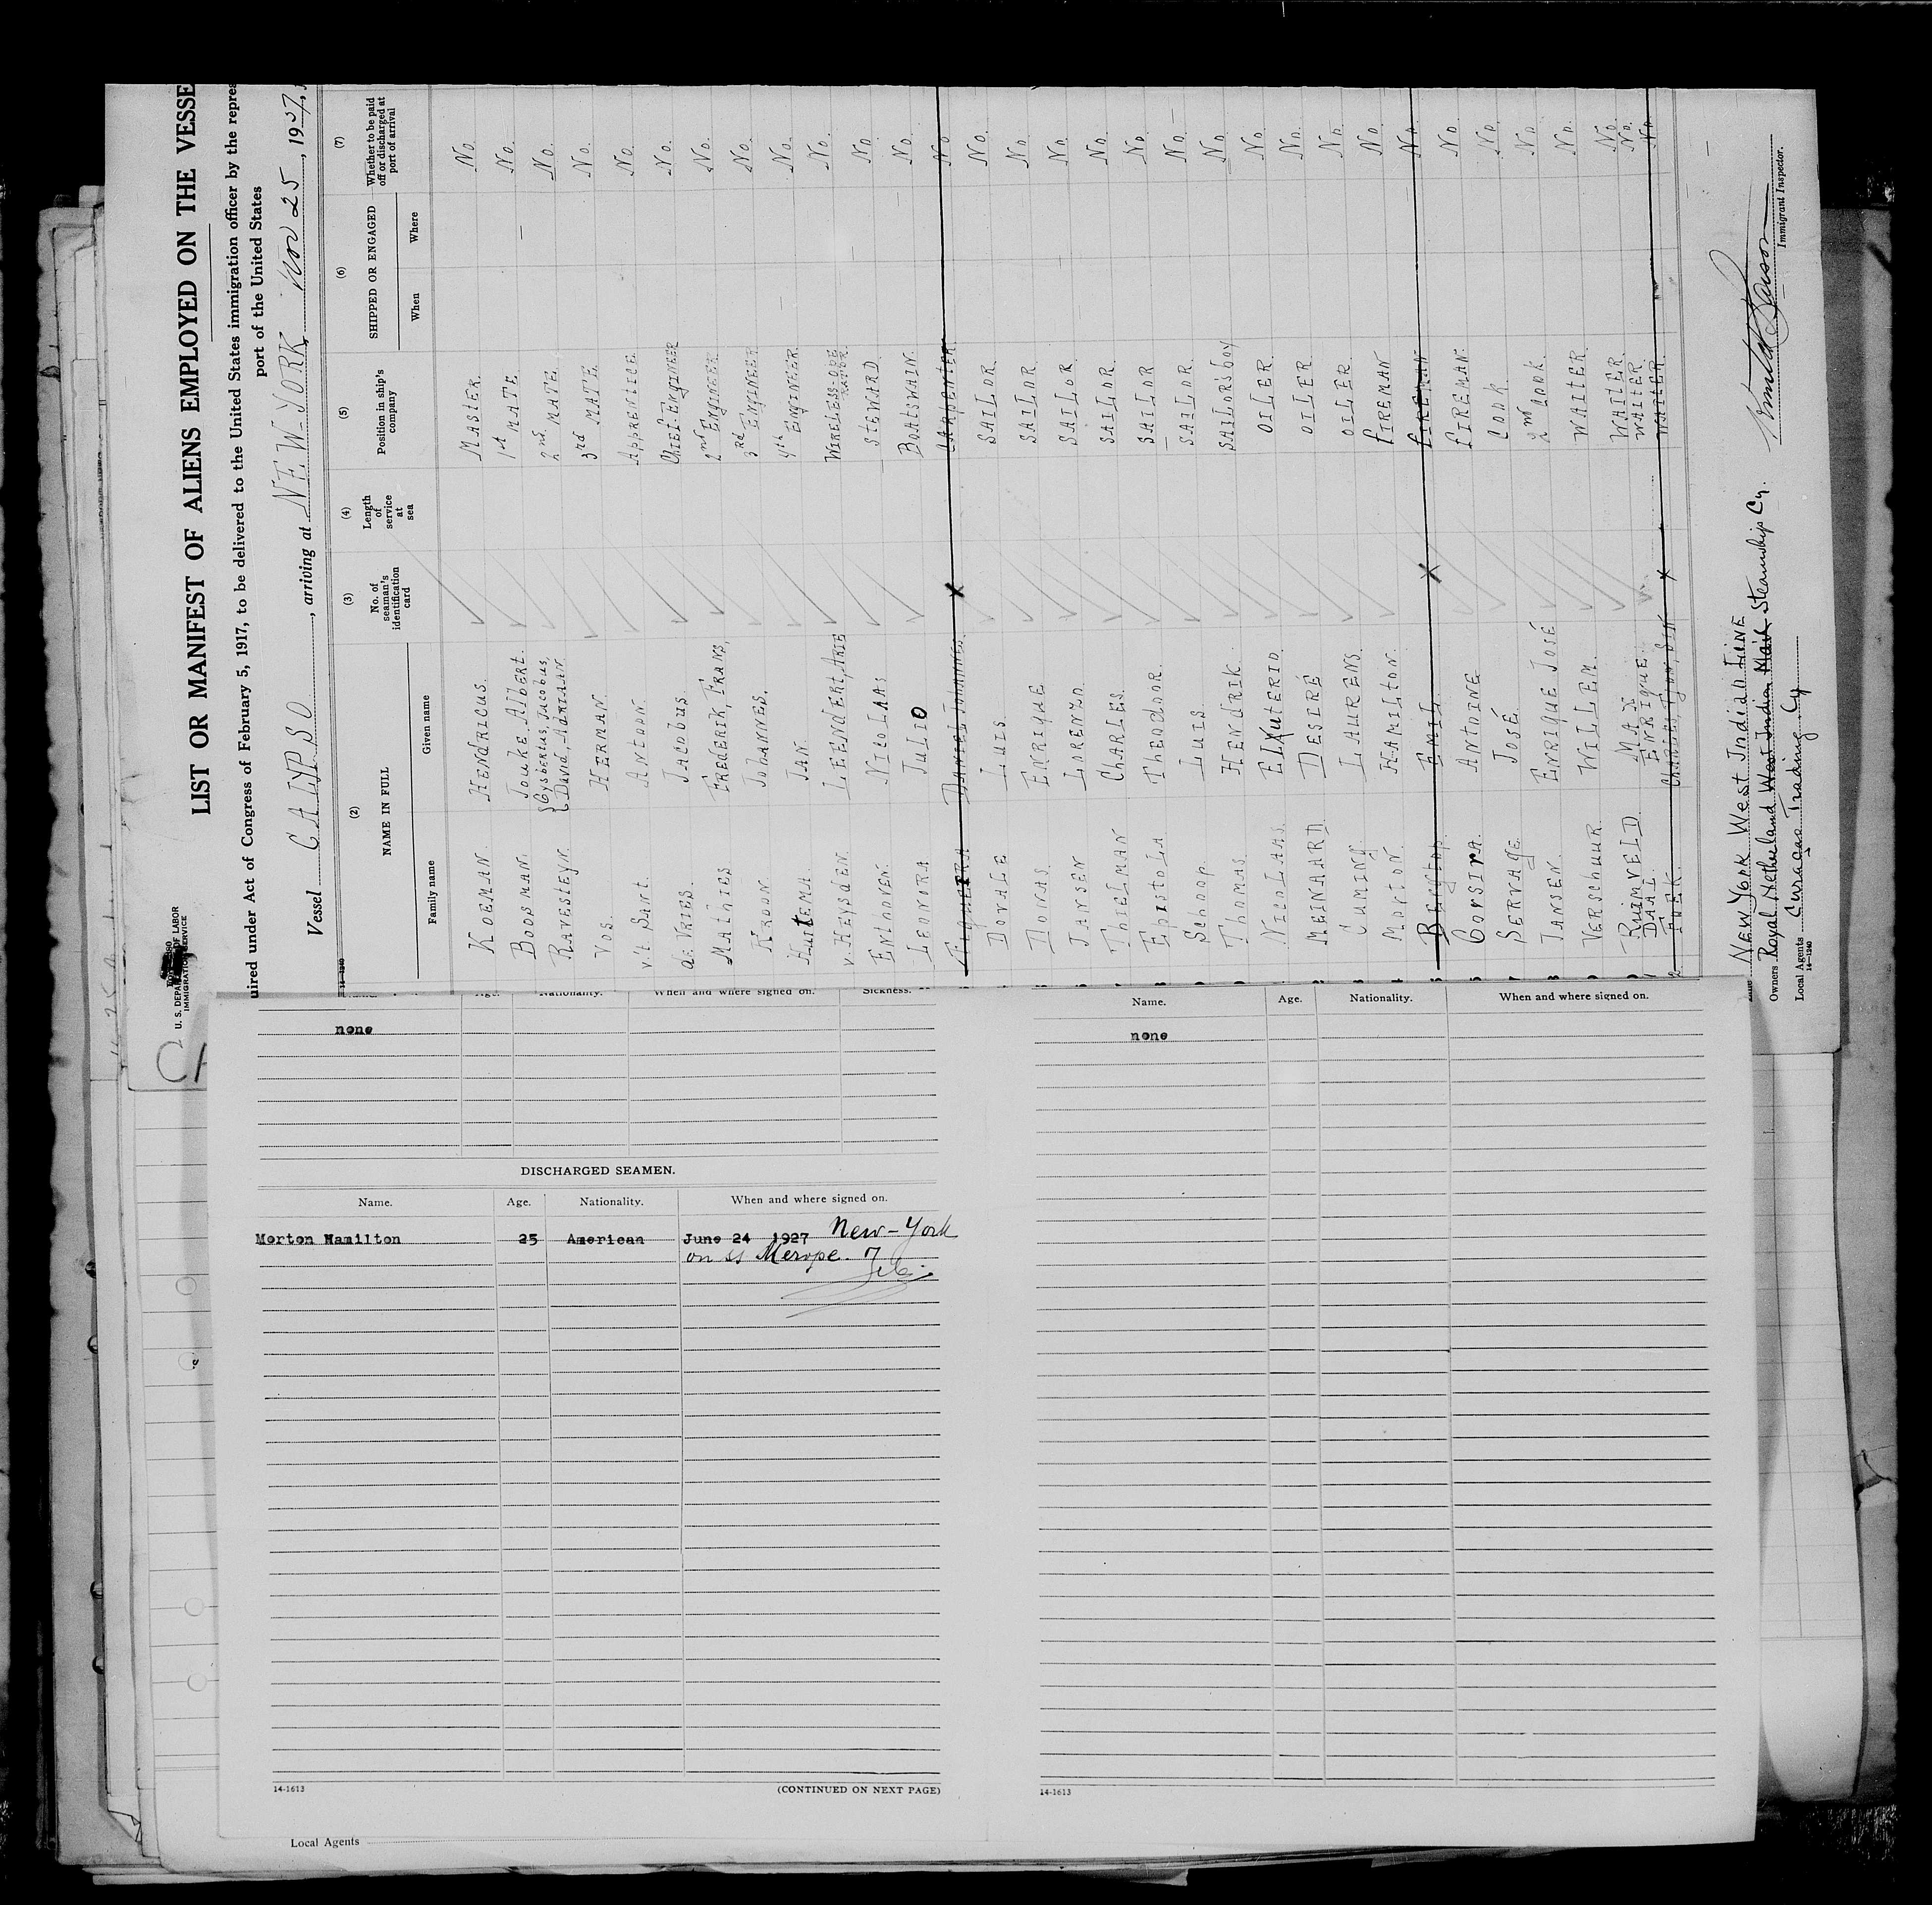 LIST OR MANIFEST OF ALIENS EMPLOYED ON THE VESSE
uired under Act of Congress of February 5, 1917, to be delivered to the United States immigration officer by the repres
port of the United States
U. S. DEPARTMENT OF LABOR
IMMIGRATION SERVICE
Vessel CALYPSO, arriving at NEW-YORK, Nov 25, 1927,
(2) (3) (4) (5) (6) (7)
NAME IN FULL
Family name Given name
No. of seaman's identification card
Length of service at sea
Position in ship's company
SHIPPED OR ENGAGED
When Where
Whether to be paid off or discharged at port of arrival
KOEMAN. HENDRICUS. MASTER. No.
BOOSMAN. Jouke. Albert. 1st MATE No.
RAVESTEYN. {Gysbertus, Jacobus, David, ADRIAAN 2nd MATE. No.
VOS. HERMAN 3rd MATE. No.
v't SANT. ANTOON. APPRENTICE No.
de VRIES. JACOBUS. CHIEF-ENGINEER No.
MATHIES FREDERIK, FRANS, 2nd ENGINEER No.
KROON. JOHANNES. 3rd ENGINEER No.
HUITEMA. JAN. 4th ENGINEER. No.
v. HEYSDEN. LEENDERT, ARIE WIRELESS-OPERATOR. No.
ENTHOVEN. NICOLAAS STEWARD No.
LEONORA JULIO BOATSWAIN. No.
FIGUEIRA DANIEL JOHANNES. CARPENTER. No
DOVALE LUIS SAILOR No.
DONAS. ENRIQUE SAILOR No
JANSEN LORENZO. SAILOR No.
THIELMAN CHARLES. SAILOR. No
EPISTOLA THEODOOR. SAILOR No.
SCHOOP. LUIS. SAILOR. No
THOMAS. HENDRIK. SAILOR'S boy No
NICOLAAS. ELXUTERIO OILER No.
MEINARD. DESIRÉ OILER No.
CUMING LAURENS. OILER No.
MORTON. HAMILTON. FIREMAN No.
EMIL. FIREMAN No.
CORSIRA ANTOINE FIREMAN. No
SERVAGE. JOSÉ. COOK No.
JANSEN. ENRIQUE JOSÉ 2nd COOK. No
VERSCHUUR. WILLEM. WAITER No
RUIMVELD. MAX WAITER No.
DAAL. ENRIQUE. WAITER No.
WAITER. No
Line New York West Indian Line
Owners Royal Netherland West Indian Mail Steamship Cy.
Local Agents Curaçao Trading Cy
14—1240
Immigrant Inspector.
Name. Age. Nationality. When and where signed on. Sickness.
none
DISCHARGED SEAMEN.
Name. Age. Nationality. When and where signed on.
Morton Hamilton 25 American June 24 1927 New-York
on ss Merope.
14-1613 (CONTINUED ON NEXT PAGE)
Local Agents
Name. Age. Nationality. When and where signed on.
none
14-1613